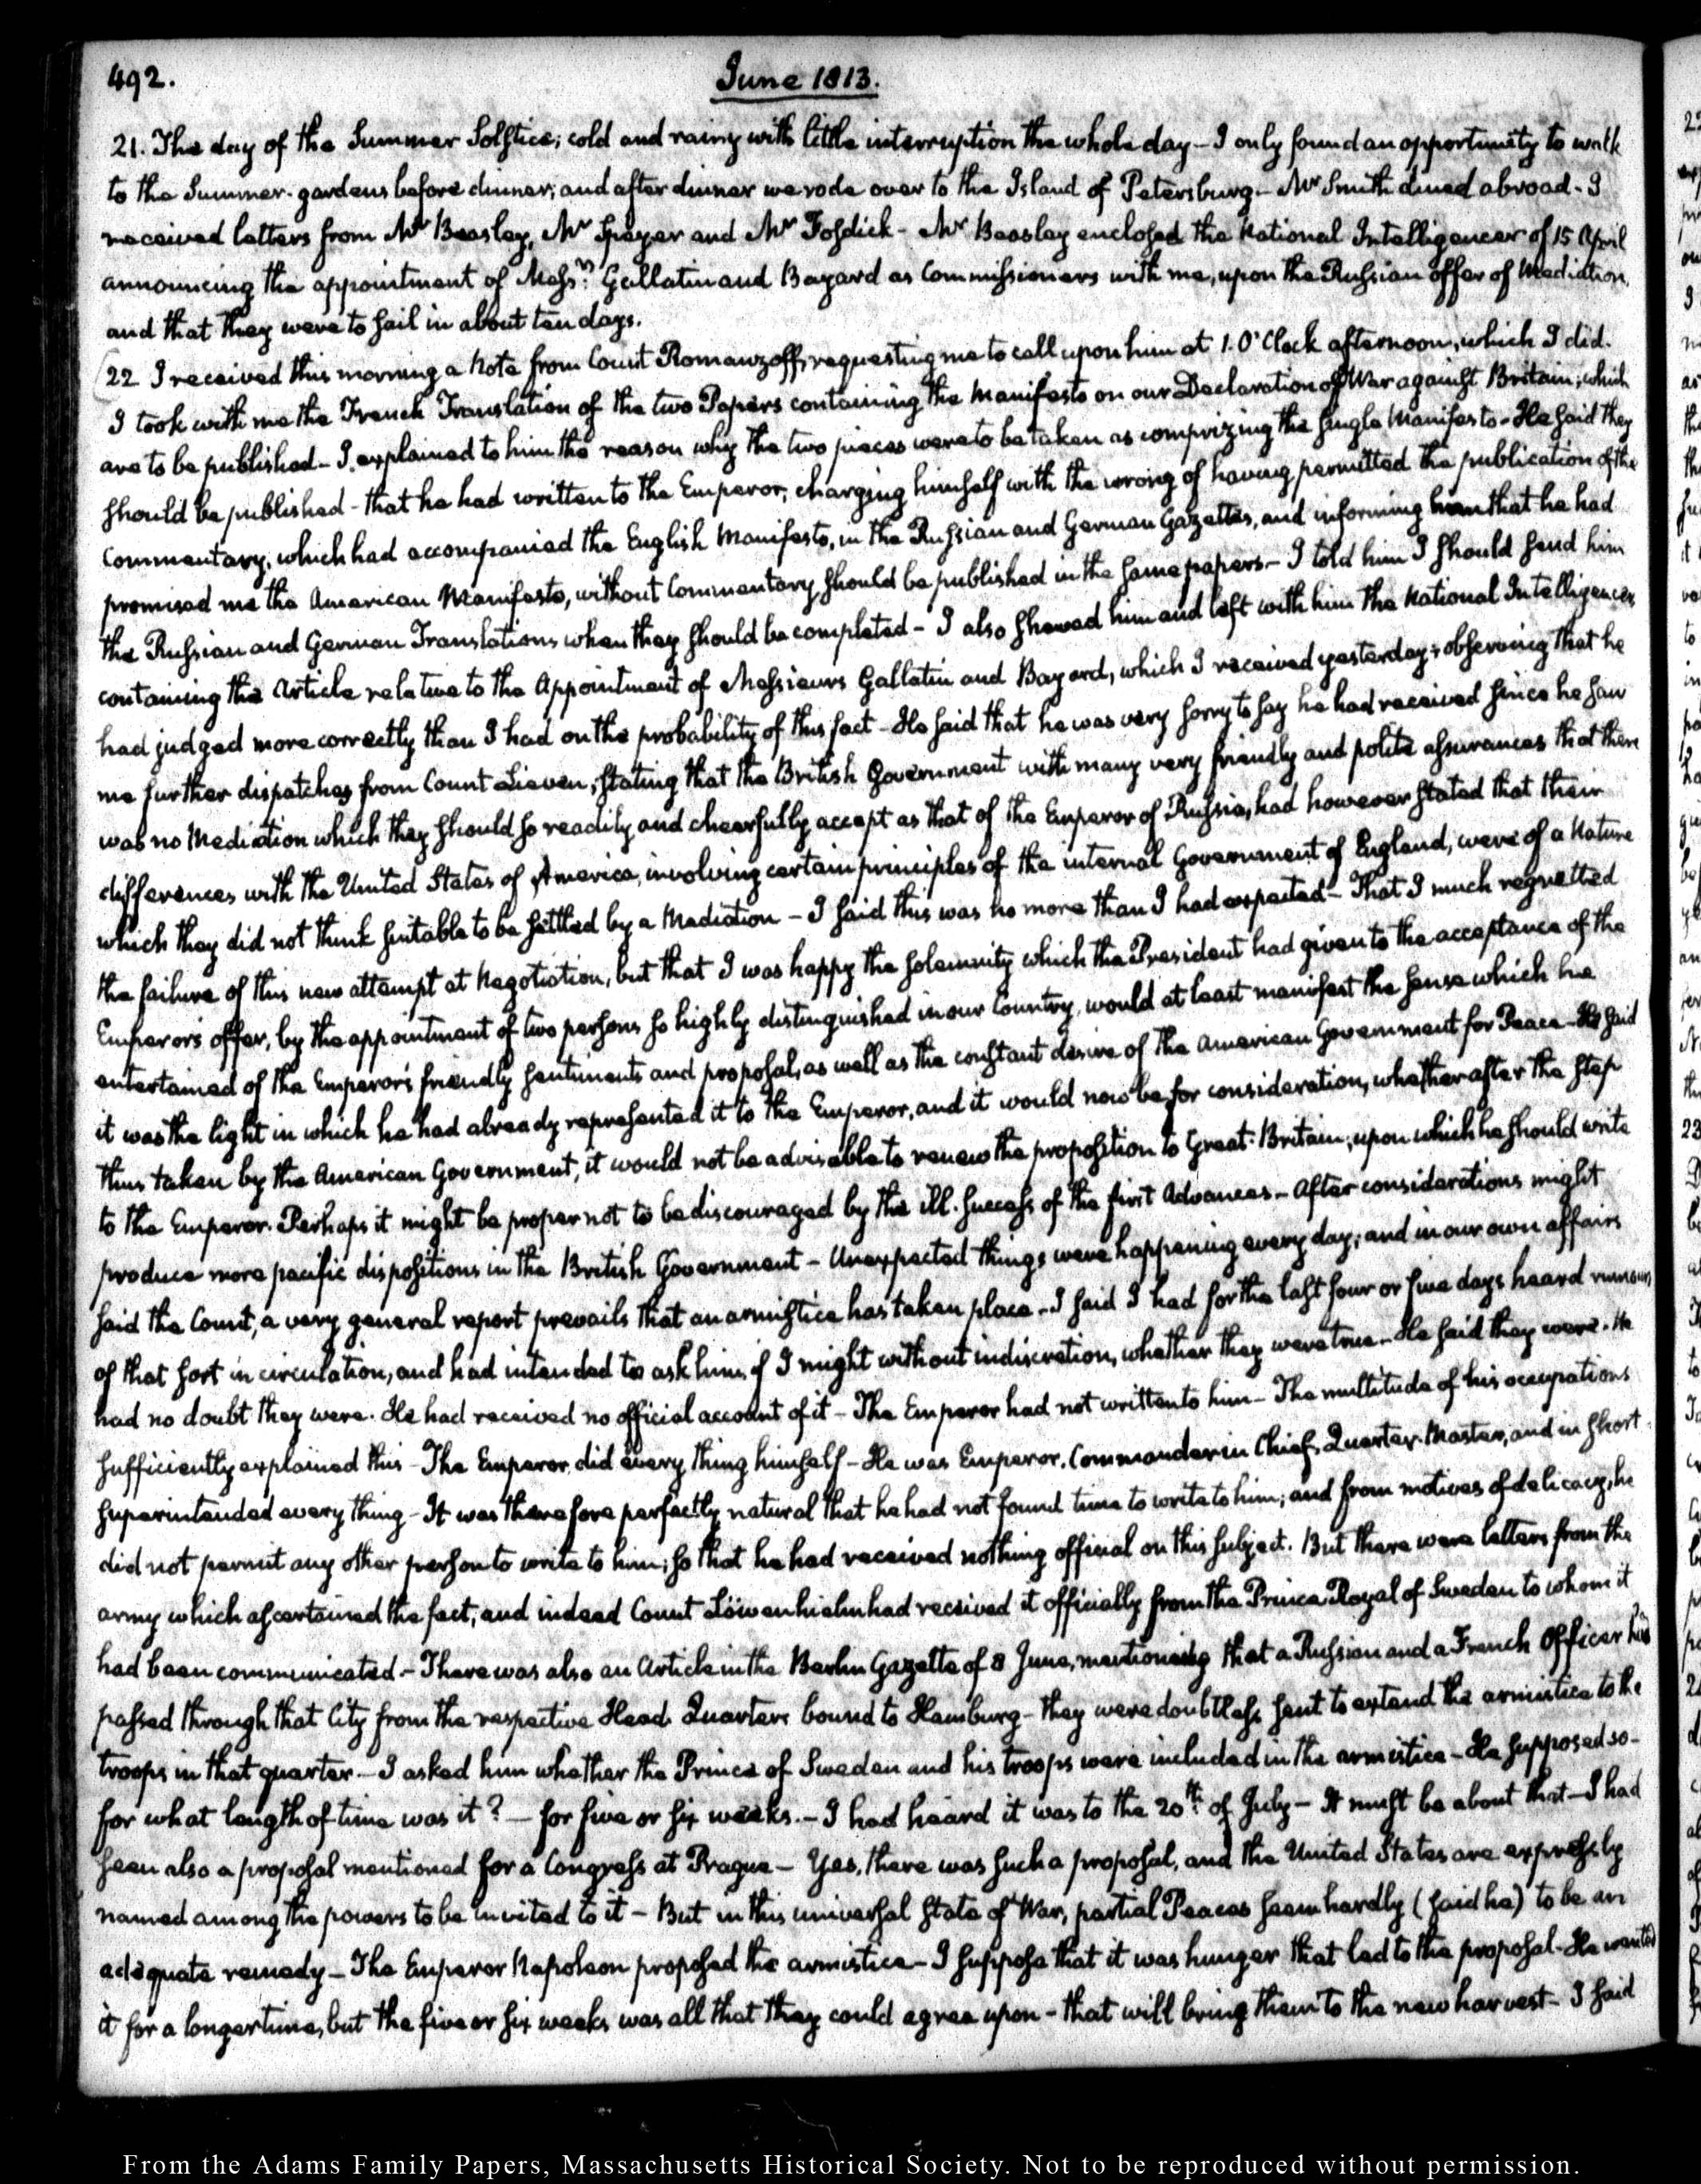 492.
June 1813.
21. The day of the Summer Solstice; cold and rainy with little interruption the whole day - I only found an opportunity to walk
to the Summer-gardens before dinner; and after dinner we rode over to the Island of Petersburg - Mr Smith dined abroad - I
received letters from Mr Beasley, Mr Speyer and Mr Fosdick - Mr Beasley enclosed the National Intelligencer of 15 April
announcing the appointment of Messrs Gallatin and Bayard as Commissioners with me, upon the Russian offer of Mediation,
and that they were to sail in about ten days.
22 I received this morning a Note from Count Romanzoff, requesting me to call upon him at 1. O'Clock afternoon, which I did.
I took with me the French Translation of the two Papers containing the Manifesto on our Declaration of War against Britain; which
are to be published - I explained to him the reason why the two pieces were to be taken as comprizing the single Manifesto - He said they
should be published - that he had written to the Emperor, charging himself with the wrong of having permitted the publication of the
Commentary, which had accompanied the English Manifesto, in the Russian and German Gazettes, and informing him that he had
promised me the American Manifesto, without Commentary should be published in the same papers - I told him I should send him
the Russian and German Translations when they should be completed - I also showed him and left with him the National Intelligencer,
containing the Article relative to the Appointment of Messieurs Gallatin and Bayard, which I received yesterday; observing that he
had judged more correctly than I had on the probability of this fact - He said that he was very sorry to say he had received since he saw
me further dispatches from Count Lieven, stating that the British Government with many very friendly and polite assurances that there
was no Mediation which they should so readily and cheerfully accept as that of the Emperor of Russia, had however stated that their
differences with the United States of America, involving certain principles of the internal Government of England, were of a Nature
which they did not think suitable to be settled by a Mediation - I said this was no more than I had expected - That I much regretted
the failure of this new attempt at Negotiation, but that I was happy the solemnity which the President had given to the acceptance of the
Emperor's offer, by the appointment of two persons so highly distinguished in our Country, would at least manifest the sense which he
entertained of the Emperor's friendly sentiments and proposal, as well as the constant desire of the American Government for Peace - He said
it was the light in which he had already represented it to the Emperor, and it would now be for consideration, whether after the step
thus taken by the American Government, it would not be advisable to renew the proposition to Great-Britain; upon which he should write
to the Emperor. Perhaps it might be proper not to be discouraged by the ill-success of the first Advances - After considerations might
produce more pacific dispositions in the British Government - Unexpected things were happening every day; and in our own affairs
said the Count, a very general report prevails that an armistice has taken place - I said I had for the last four or five days heard rumours
of that sort in circulation, and had intended to ask him, if I might without indiscretion, whether they were true - He said they were. He
had no doubt they were. He had received no official account of it - The Emperor had not written to him - The multitude of his occupations
sufficiently explained this - The Emperor did every thing himself - He was Emperor, Commander in Chief, Quarter-Master, and in short
superintended every thing - It was therefore perfectly natural that he had not found time to write to him; and from motives of delicacy, he
did not permit any other person to write to him; so that he had received nothing official on this subject. But there were letters from the
army which ascertained the fact, and indeed Count Löwenhielm had received it officially from the Prince Royal of Sweden to whom it
had been communicated - There was also an Article in the Berlin Gazette of 8 June, mentioning that a Russian and a French Officer had
passed through that City from the respective Head-Quarters bound to Hamburg - they were doubtless sent to extend the armistice to the
troops in that quarter - I asked him whether the Prince of Sweden and his troops were included in the armistice - He supposed so -
for what length of time was it? - for five or six weeks. - I had heard it was to the 20th of July - It must be about that - I had
seen also a proposal mentioned for a Congress at Prague - Yes, there was such a proposal, and the United States are expressly
named among the powers to be invited to it - But in this universal state of War, partial Peaces seem hardly (said he) to be an
adequate remedy - The Emperor Napoleon proposed the armistice - I suppose that it was hunger that led to the proposal - He wanted
it for a longer time, but the five or six weeks was all that they could agree upon - that will bring them to the new harvest - I said
From the Adams Family Papers, Massachusetts Historical Society. Not to be reproduced without permission.